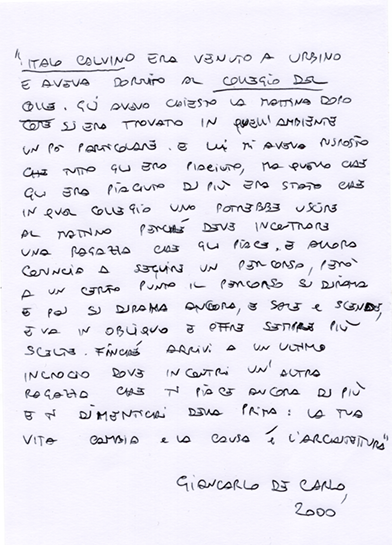 "ITALO CALVINO ERA VENUTO A URBINO
E AVEVA DORMITO AL COLLEGIO DEL
COLLE. GLI AVEVO CHIESTO LA MATTINA DOPO
COME SI ERA TROVATO IN QUELL'AMBIENTE
UN PO' PARTICOLARE. E LUI MI AVEVA RISPOSTO
CHE TUTTO GLI ERA PIACIUTO, MA QUELLO CHE
GLI ERA PIACIUTO DI PIÙ ERA STATO CHE
IN QUEL COLLEGIO UNO POTREBBE USCIRE
AL MATTINO PERCHÉ DEVE INCONTRARE
UNA RAGAZZA CHE GLI PIACE. E ALLORA
COMINCIA A SEGUIRE UN PERCORSO, PERÒ
A UN CERTO PUNTO IL PERCORSO SI DIRAMA
E POI SI DIRAMA ANCORA, E SALE E SCENDE,
E VA IN OBLIQUO E OFFRE SEMPRE PIÙ
SCELTE. FINCHÉ ARRIVI A UN ULTIMO
INCROCIO DOVE INCONTRI UN'ALTRA
RAGAZZA CHE TI PIACE ANCORA DI PIÙ
E TI DIMENTICHI DELLA PRIMA: LA TUA
VITA CAMBIA E LA CAUSA È L'ARCHITETTURA"
GIANCARLO DE CARLO,
2000